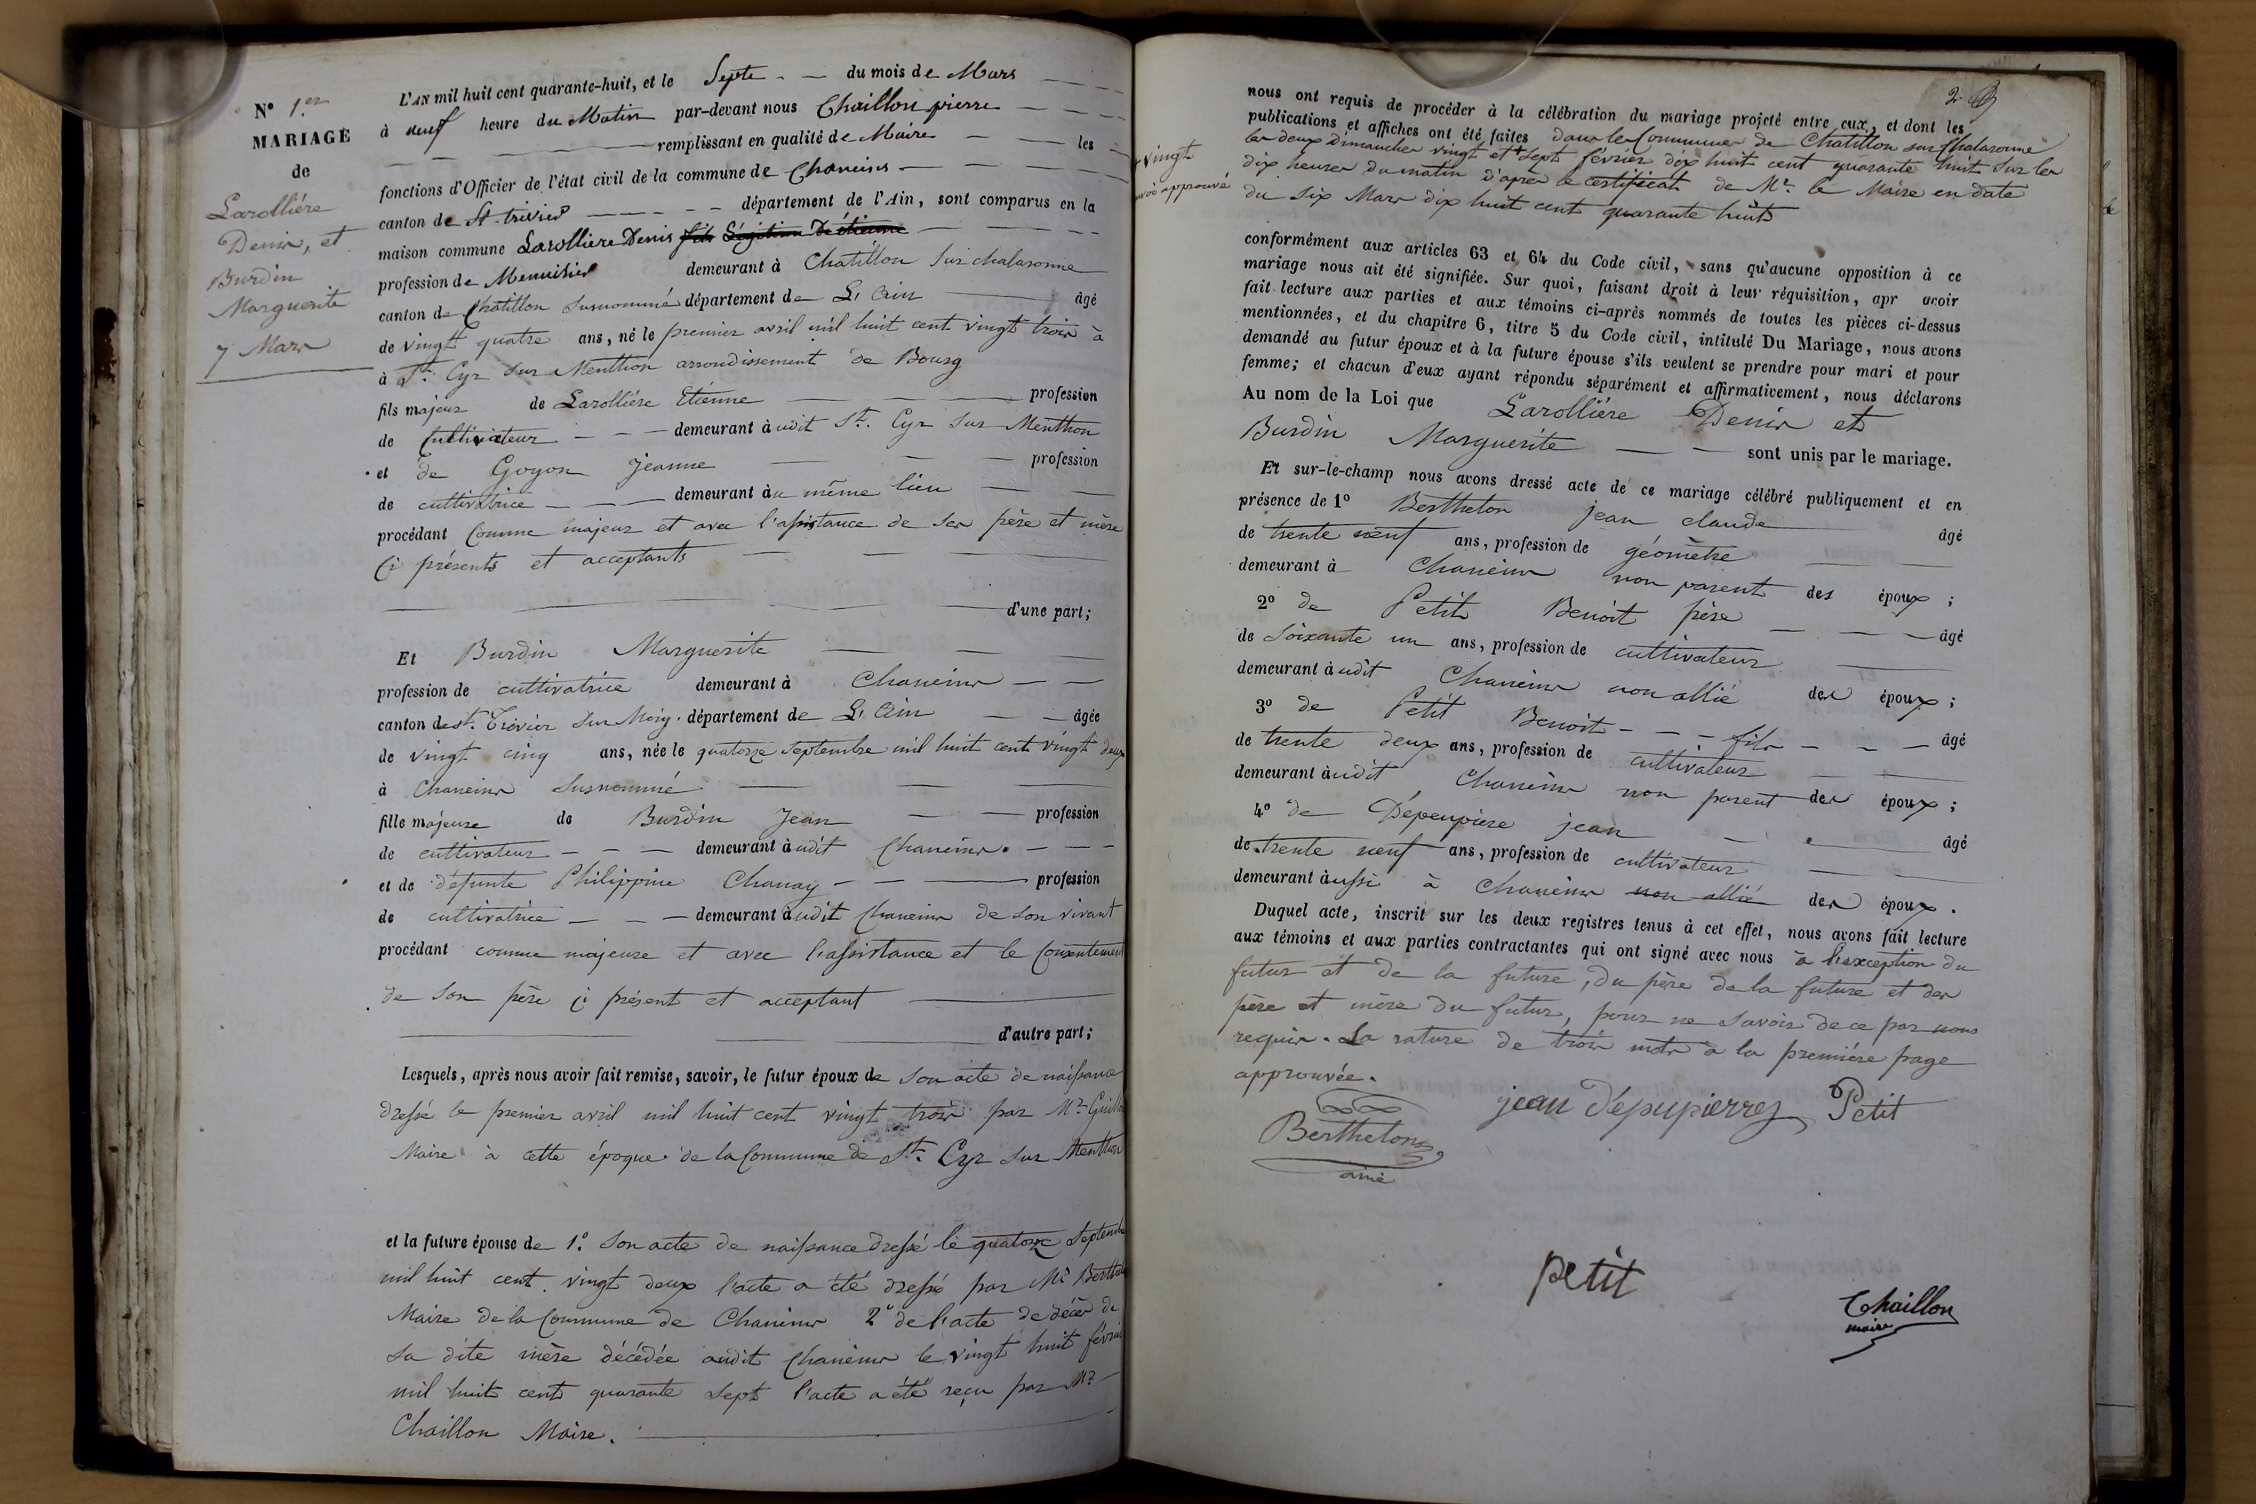 N° 1.er
MARIAGE
de
Larollière
Denis, et
Burdin
Marguerite
7 Mars
L'AN mil huit cent quarante-huit, et le Septe du mois de Mars
à neuf heure du Matin par-devant nous Chaillon pierre
remplissant en qualité de Maire les
fonctions d'Officier de l'état civil de la commune de Chaneins
canton de St trivier département de l'Ain, sont comparus en la
maison commune Larolliere Denis fils Légitime De étienne
profession de Menuisier demeurant à Chatillon sur chalaronne
canton de Chatillon susnommé département de L'Ain âgé
de vingt quatre ans, né le premier avril mil huit cent vingt trois à
à St. Cyr sur Menthon arrondissement de Bourg
fils majeur de Larollière Etienne profession
de Cultivateur demeurant à udit St. Cyr sur Menthon
et de Goyon Jeanne profession
de cultivatrice demeurant àu même lieu
procédant Comme majeur et avec l'assistance de ses père et mère
Ci présents et acceptants
d'une part;
Et Burdin Marguerite
profession de cultivatrice demeurant à Chaneins
canton de St. Trivier sur Moig. département de L'Ain âgée
de vingt cinq ans, née le quatorze septembre mil huit cent vingt deux
à Chaneins susnommé
fille majeure de Burdin Jean profession
de cultivateur demeurant àudit Chaneins.
et de défunte Philippine Chanay profession
de cultivatrice demeurant àudit Chaneins de son vivant
procédant comme majeure et avec l'assistance et le Consentement
de son père ci présent et acceptant
d'autre part;
Lesquels, après nous avoir fait remise, savoir, le futur époux de son acte de naissance
dressé le premier avril mil huit cent vingt trois par Mr
Maire à cette époque de la Commune de St. Cyr sur Menthon
et la future épouse de 1.° son acte de naissance dressé le quatorze Septembre
mil huit cent vingt deux l'acte a été dressé par Mr
Maire de la Commune de Chaneins 2° de l'acte de décès de
sa dite mère décédée audit Chaneins le vingt huit février
mil huit cent quarante sept l'acte a été reçu par Mr
Chaillon Maire.
2
nous ont requis de procéder à la célébration du mariage projeté entre eux, et dont les
publications et affiches ont été faites dans la Commune de Chatillon sur Chalaronne
les deux Dimanches vingt et + sept février dix huit cent quarante huit sur les
+ vingt
dix heures du matin d'après le certificat de Mr. le Maire en date
approuvé
du six Mars dix huit cent quarante huit
conformément aux articles 63 et 64 du Code civil, sans qu'aucune opposition à ce
mariage nous ait été signifiée. Sur quoi, faisant droit à leur réquisition, apr avoir
fait lecture aux parties et aux témoins ci-après nommés de toutes les pièces ci-dessus
mentionnées, et du chapitre 6, titre 5 du Code civil, intitulé Du Mariage, nous avons
demandé au futur époux et à la future épouse s'ils veulent se prendre pour mari et pour
femme; et chacun d'eux ayant répondu séparément et affirmativement, nous déclarons
Au nom de la Loi que Larollière Denis et
Burdin Marguerite sont unis par le mariage.
Et sur-le-champ nous avons dressé acte de ce mariage célébré publiquement et en
présence de 1° Berthelon jean claude âgé
de trente neuf ans, profession de géomètre
demeurant à Chaneins non parent des époux;
2° de Petit Benoit père âgé
de Soixante un ans, profession de cultivateur
demeurant àudit Chaneins non allié des époux;
3° de Petit Benoit fils âgé
de trente deux ans, profession de cultivateur
demeurant àudit Chaneins non parent des époux;
4° de Dépeupiere jean âgé
de trente neuf ans, profession de cultivateur
demeurant àussi à Chaneins non allié des époux.
Duquel acte, inscrit sur les deux registres tenus à cet effet, nous avons fait lecture
aux témoins et aux parties contractantes qui ont signé avec nous à l'exception du
futur et de la future, du père de la future et des
père et mère du futur, pour ne savoir de ce par nous
requis. La rature de trois mots à la première page
approuvée.
jean Dépupierres Petit
Berthelon
ainé
petit
Chaillon
maire